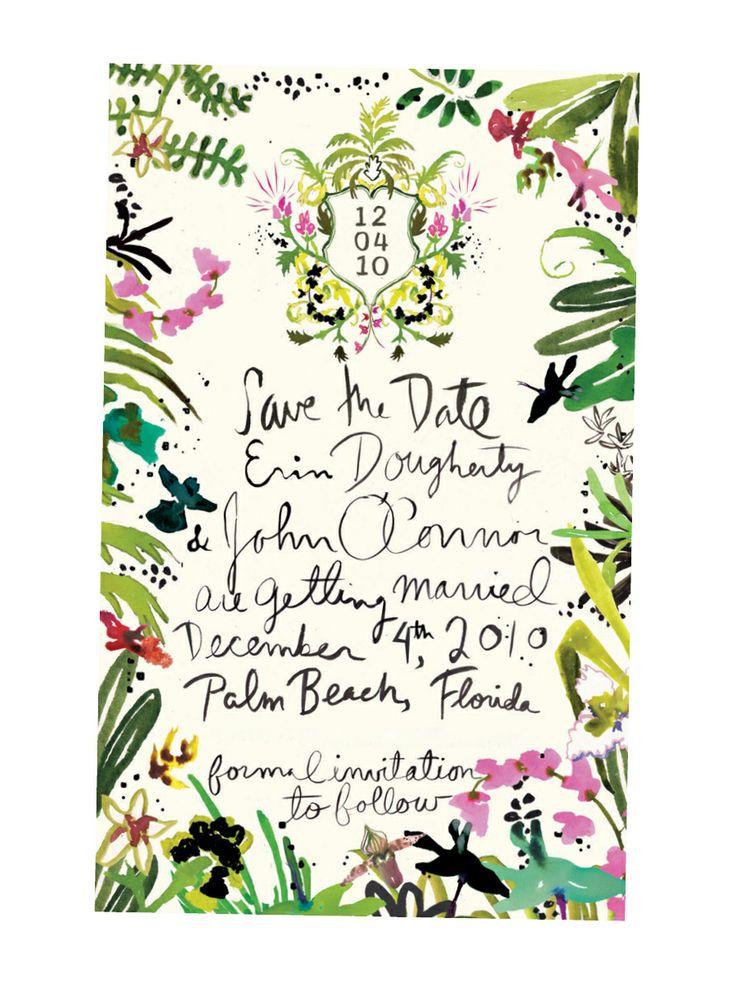 12
04
10
Save the Date
Erin Dougherty
& John O'Connor
are getting married
December 4th, 2010
Palm Beach, Florida
formal invitation
to follow